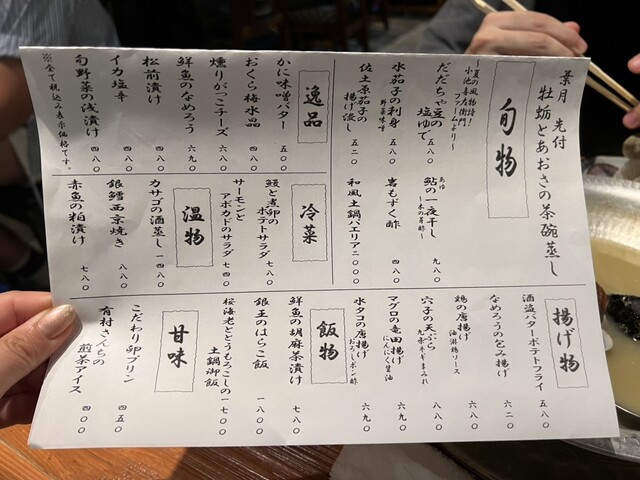 葉月 先付
牡蛎とあおさの茶碗蒸し
旬物
〜夏の風物詩!
小池喜右衛門
ファームより〜
だだちゃ豆の
塩ゆで 五〇〇
水茄子の刺身
野菜味噌
佐土原茄子の
揚げ浸し 五二〇
鮎の一夜干し
あゆ
九八〇
岩もずく酢 四八〇
和風土鍋パエリア 二〇〇〇
逸品
かに味噌バター 五〇〇
おくら梅水晶 四八〇
燻りがっこチーズ 六八〇
鮮魚のなめろう 六九〇
松前漬け 四八〇
イカ塩辛 四八〇
旬野菜の浅漬け 四八〇
※全て税込み表示価格です。
冷菜
鰻と煮卵の
ポテトサラダ 七八〇
サーモンと
アボカドのサラダ 七四〇
温物
カサゴの酒蒸し 一四八〇
銀鱈西京焼き 八八〇
赤魚の粕漬け 七八〇
揚げ物
酒盗バターポテトフライ 五八〇
なめろうの包み揚げ 六二〇
鶏の唐揚げ
油淋鶏ソース 六八〇
穴子の天ぷら
九条ネギまみれ 八八〇
マグロの竜田揚げ
にんにく醤油 六九〇
水タコの唐揚げ
おろしポン酢 六九〇
飯物
鮮魚の胡麻茶漬け 七八〇
銀王のはらこ飯 一八〇〇
桜海老ととうもろこしの
土鍋御飯 一七〇〇
甘味
こだわり卵プリン 四五〇
有村さんちの
煎茶アイス 四〇〇